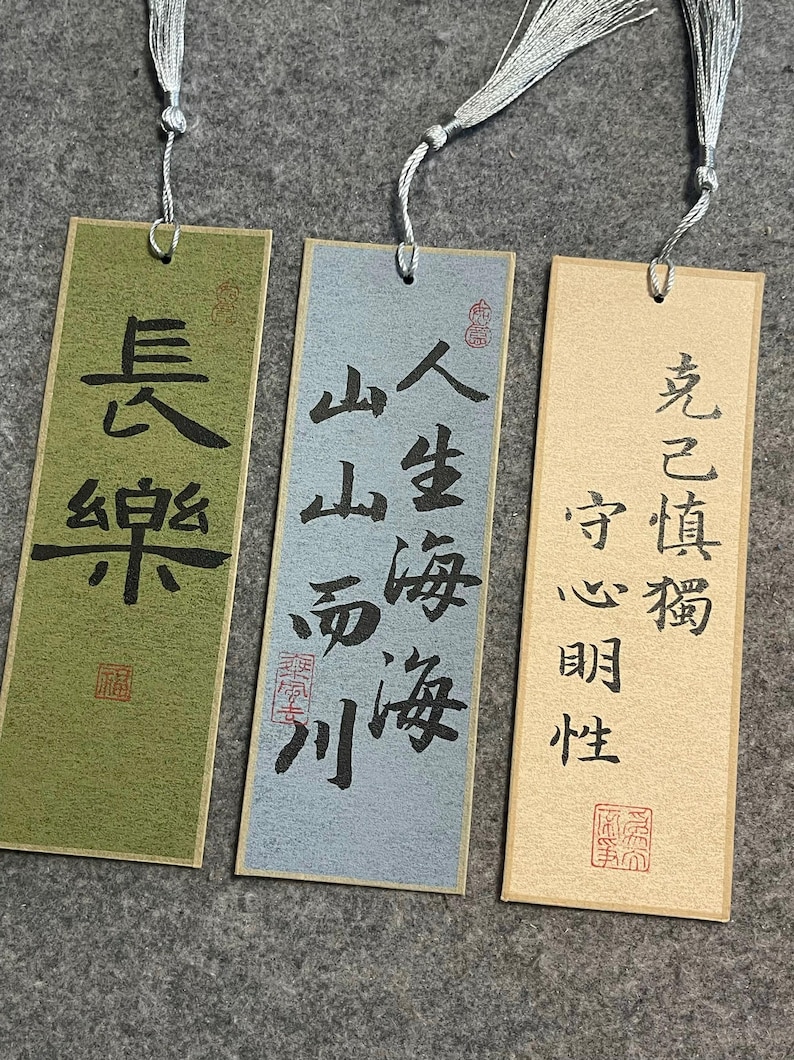 長樂
福
如意
人生海海
山山而川
克己慎獨
守心明性